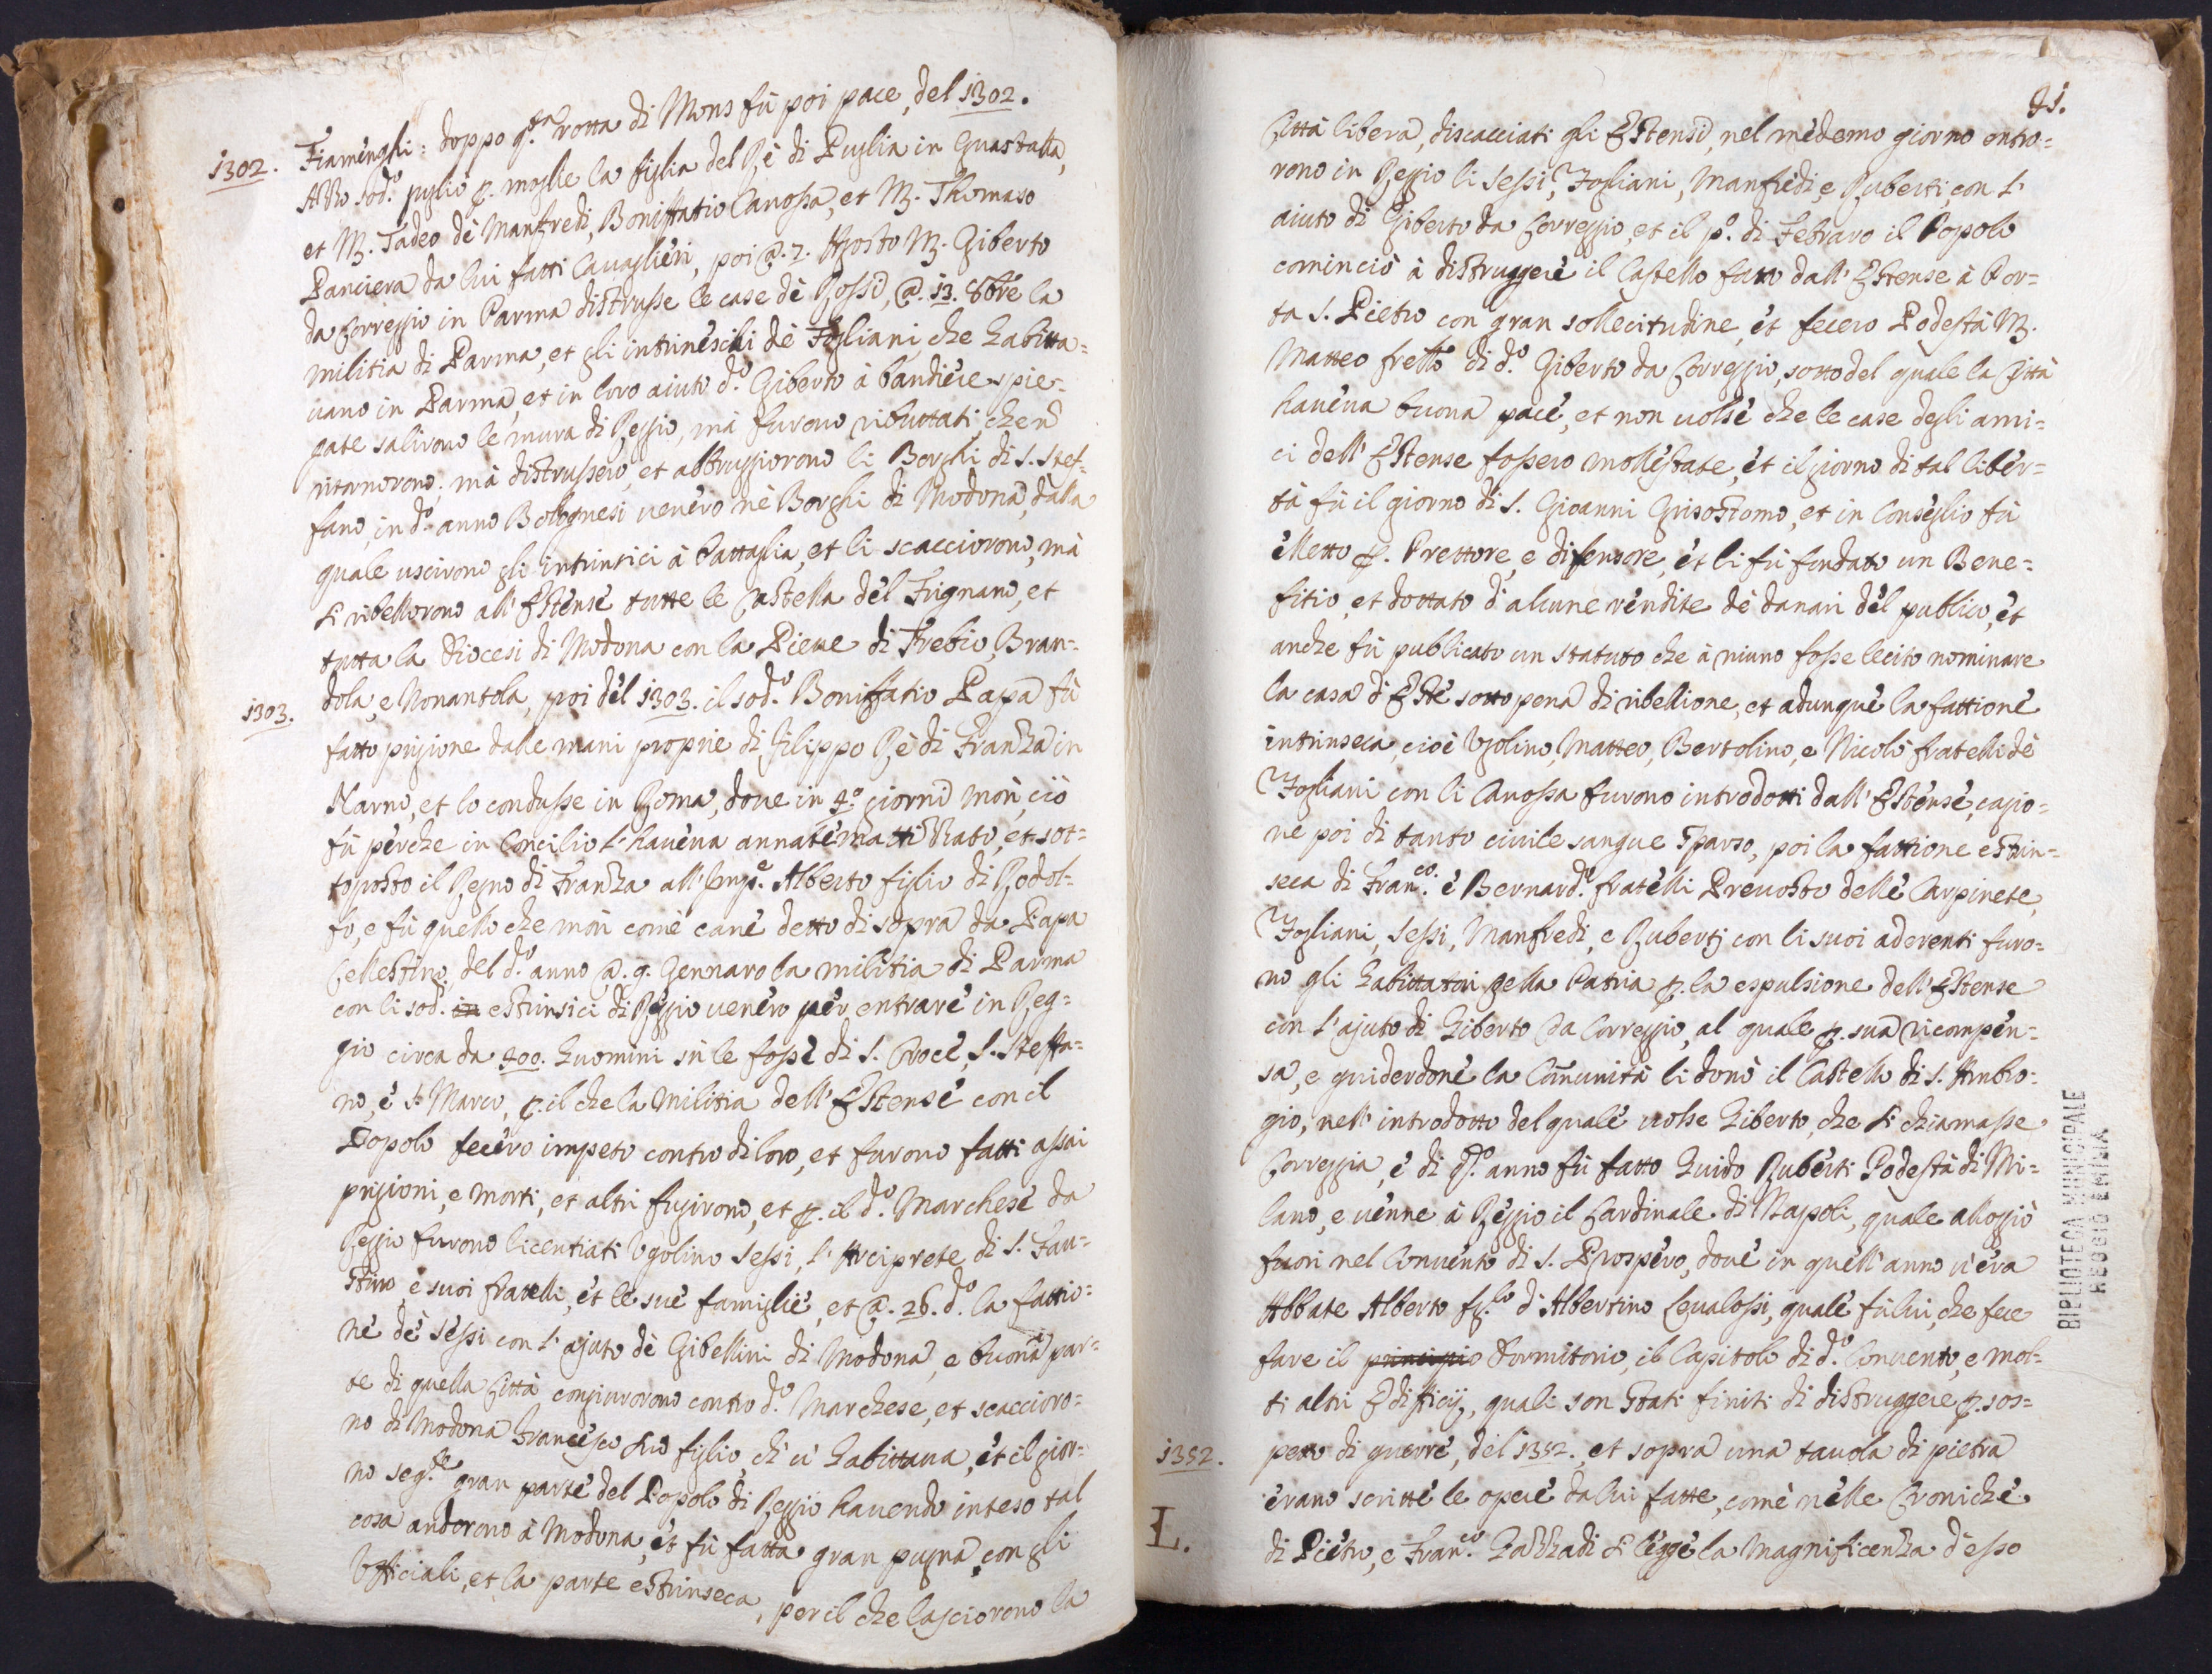 1302. Fiamenghi: doppo q.ta rotta di Mons fù poi pace, del 1302.
Azzo sod.o pigliò p. moglie la figlia del Rè di Puglia in Guastalla,
et M. Tadeo dè Manfredi, Boniffatio Canossa, et M. Thomaso
Panciera da lui fatti Cavaglieri, poi @. 2. Agosto M. Giberto
da Correggio in Parma distrusse le case dè Rossi, @. 13. 8bre la
militia di Parma, et gli intrineschi dè Fogliani, che habitta=
uano in Parma, et in loro aiuto d.o Giberto à bandiere spie=
gate salirono le mura di Reggio, mà furono ributtati, che
ritornorono; mà distrussero, et abbruggiorono li Borghi di S. Stef=
fano, in d.o anno Bolognesi uenero nè Borghi di Modona, dalla
quale uscirono gli Intrintici à battaglia, et li scacciorono, mà
si ribellorono all' Estense tutte le Castella del Frignano, et
tutta la Diocesi di Modona con la Pieue di Trebio, Bran=
1303. dola, e Nonantola, poi del 1303. il sod.o Boniffatio Papa fù
fatto prigione dalle mani proprie di Filippo Rè di Franza in
Narno, et lo condusse in Roma, doue in 4.o giorni morì, ciò
fù perche in Concilio l' haueua annatematizzato, et sot=
toposto il Regno di Franza all' Imp.e Alberto figlio di Rodol=
fo, e fù quello che morì come cane detto di sopra da Papa
Cellestino, del d.o anno @. 9. Gennaro la militia di Parma
con li sod. in estrinsici di Reggio uenero per entrare in Reg=
gio circa da 400. huomini sù le fosse di S. Croce, S. Steffa=
no, e S. Marco, p. il che la Militia dell' Estense con il
Popolo fecero impeto contro di loro, et furono fatti assai
prigioni, e morti, et altri fugirono, et p. il d.o Marchese da
Reggio furono licentiati Ugolino Sessi, l' Arciprete di S. Fau=
stino, e suoi fratelli, et le sue famiglie, et @. 26. d.o la fattio=
ne de Sessi con l' ajuto dè Gibellini di Modona, e buona par=
te di quella Città congiurorono contro d.o Marchese, et scaccioro=
no di Modona Francesco suo figlio ch' ui habittaua, et il gior=
no seg.te gran parte del Popolo di Reggio hauendo inteso tal
cosa andorono à Modona, et fù fatta gran pugna, con gli
Ufficiali, et la parte estrinseca, per il che lasciorono la
41.
Città libera, discacciati gli Estensi, nel medemo giorno entro=
rono in Reggio li Sessi, Fogliani, Manfredi, e Ruberti, con l'
aiuto di Giberto da Correggio, et il p.o di Febraro il Popolo
cominciò à distruggere il Castello fatto dall' Estense à Por=
ta S. Pietro con gran sollecitudine, et fecero Podestà M.
Matteo fretto di d.o Giberto da Correggio, sotto del quale la Città
haueua buona pace, et non uolse che le case degli ami=
ci dell' Estense fossero mollestate, et il giorno di tal liber=
tà fù il giorno di S. Gioanni Grisostomo, et in Conseglio fù
elletto p. Prettore, e difensore, et li fù fondato un Bene=
fitio, et dottato d' alcune rendite dè danari del publico, et
anche fù pubblicato un statuto che à niuno fosse lecito nominare
la casa d' Este sotto pena di ribellione, et adunque la fattione
intrinseca, cioè Ugolino, Matteo, Bertolino, e Nicolò fratelli dè
Fogliani con li Canossa furono introdotti dall' Estense, cagio=
ne poi di tanto ciuile sangue sparso, poi la fattione estrin=
seca di Fran.co e Bernard.o fratelli Preuosto delle Carpinete,
Fogliani, Sessi, Manfredi, e Rubertj con li suoi aderenti furo=
no gli habittatori della Patria p. la espulsione dell' Estense
con l' ajuto di Giberto da Correggio, al quale p. sua ricompen=
sa, e guiderdone la Comunità li donò il Castello di S. Ambro=
gio, nell' introdotto del quale uolse Giberto, che si chiamasse
Correggia, e di d.o anno fù fatto Guido Ruberti Podestà di Mi=
lano, e uenne à Reggio il Cardinale di Napoli, quale alloggiò
fuori nel Conuento di S. Prospero, doue in quell' anno u' era
Abbate Alberto fig.lo d' Albertino Leualossi, quale fù lui, che fece
fare il principio dormitorio, il Capitolo di d.o Conuento, e mol=
ti altri Edificij, quali son stati finiti di distruggere p. sos=
1352. petto di guerre, del 1352. et sopra una tauola di pietra
erano scritte le opere da lui fatte, come nelle Croniche
L. di Pietro, e Fran.co Gazzadi si legge la Magnificenza d' esso
BIBLIOTECA MUNICIPALE
REGGIO EMILIA